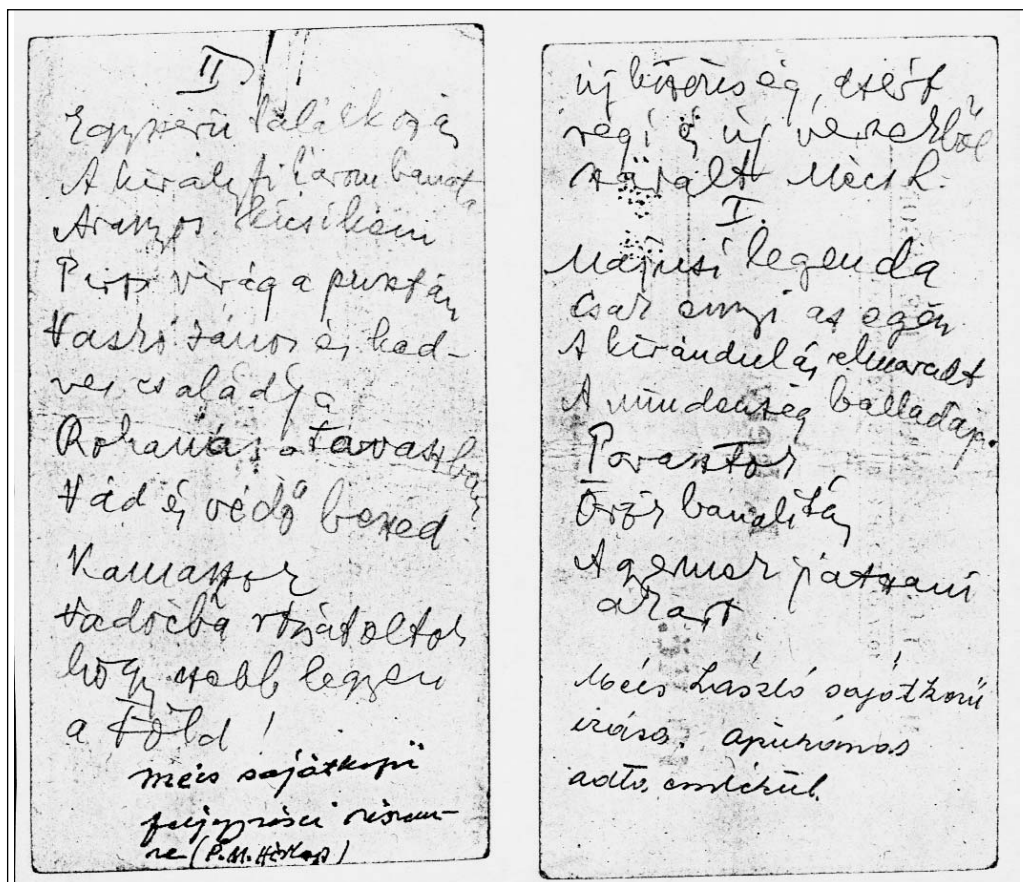 II
Egyszerű találkozás
A királyfi három bánata
Aranyos kicsikém
Piros virág a pusztán
Vaskó János és ked-
ves családja
Rohanás a tavaszban
Vád és védő beszed
Kamaszok
Vadócba rózsát oltok
hogy szebb legyen
a Föld!
Mécs sajátkezű
feljegyzései részem-
re (P.M. Hírlap)
új közönség, azért
régi és új versekből
szavalt Mécs L.
I.
Májusi legenda
Csak ennyi az egén
A kirándulás elmaradt
A mindenség balladája
Pávatoll
Őrök banalitás
A gyermek játszani
akart
Mécs László sajátkezű
írása. Apukámnak
adta emlékül.